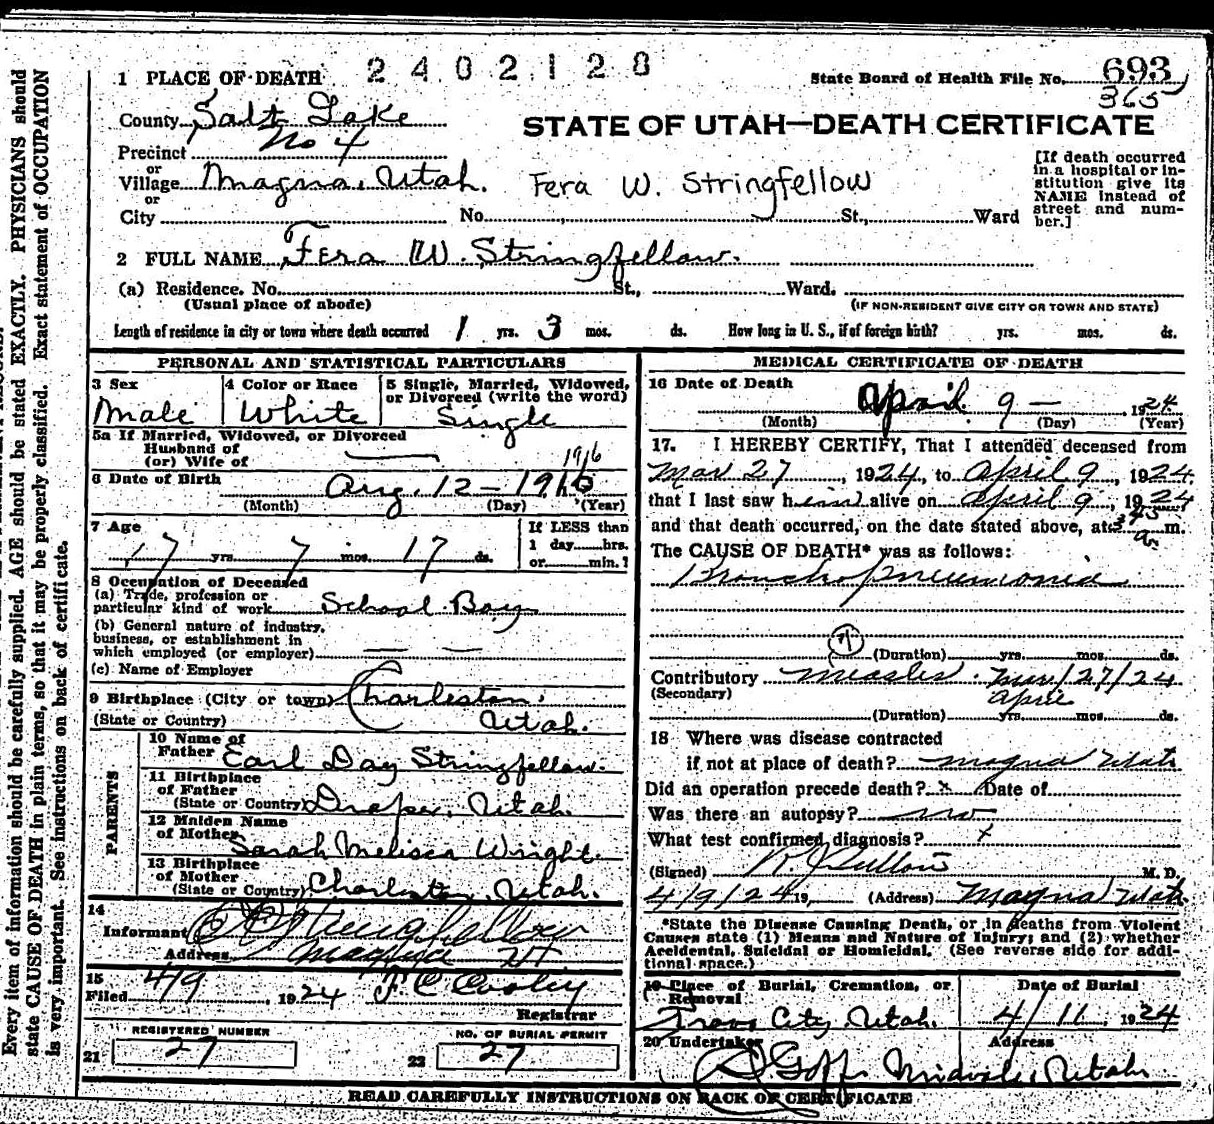 1 PLACE OF DEATH 2402120 State Board of Health File No. 693
365
County Salt Lake
STATE OF UTAH—DEATH CERTIFICATE
Precinct No 4
or
Village Magna, Utah. Fera W. Stringfellow
or
City No. St., Ward
[If death occurred in a hospital or institution give its NAME instead of street and number.]
2 FULL NAME Fera W. Stringfellow.
(a) Residence. No. St., Ward.
(Usual place of abode) (IF NON-RESIDENT GIVE CITY OR TOWN AND STATE)
Length of residence in city or town where death occurred 1 yrs. 3 mos. ds. How long in U. S., if of foreign birth? yrs. mos. ds.
PERSONAL AND STATISTICAL PARTICULARS
3 Sex 4 Color or Race 5 Single, Married, Widowed,
or Divorced (write the word)
Male White Single
5a If Married, Widowed, or Divorced
Husband of
(or) Wife of
1916
6 Date of Birth Aug. 12 - 1916
(Month) (Day) (Year)
7 Age If LESS than
7 yrs. 7 mos. 17 ds. 1 day hrs.
or min.?
8 Occupation of Deceased
(a) Trade, profession or
particular kind of work School Boy
(b) General nature of industry,
business, or establishment in
which employed (or employer)
(c) Name of Employer
9 Birthplace (City or town) Charleston,
(State or Country) Utah.
PARENTS
10 Name of
Father Earl Day Stringfellow.
11 Birthplace
of Father
(State or Country) Draper, Utah.
12 Maiden Name
of Mother Sarah Melissa Wright
13 Birthplace
of Mother
(State or Country) Charleston, Utah.
14
Informant Stringfellow
Address Magna UT
15
Filed 4/9, 1924 F C Cooley
Registrar
REGISTERED NUMBER NO. OF BURIAL PERMIT
21 27 22 27
MEDICAL CERTIFICATE OF DEATH
16 Date of Death
April 9 — 1924
(Month) (Day) (Year)
17. I HEREBY CERTIFY, That I attended deceased from
Mar 27, 1924, to April 9, 1924
that I last saw him alive on April 9, 1924
and that death occurred, on the date stated above, at 3 45 a. m.
The CAUSE OF DEATH* was as follows:
Bronchopneumonia
(Duration) yrs. mos. ds.
Contributory Measles. Mar/27/24
(Secondary) April
(Duration) yrs. mos. ds.
18 Where was disease contracted
if not at place of death? Magna Utah
Did an operation precede death? x Date of
Was there an autopsy? no
What test confirmed diagnosis? x
(Signed) M. D.
4/9/24 19 , (Address) Magna Utah.
*State the Disease Causing Death, or in deaths from Violent
Causes state (1) Means and Nature of Injury; and (2) whether
Accidental, Suicidal or Homicidal. (See reverse side for additional space.)
19 Place of Burial, Cremation, or Removal Date of Burial
City, Utah. 4/11, 1924
20 Undertaker Address
Goff Midvale, Utah.
READ CAREFULLY INSTRUCTIONS ON BACK OF CERTIFICATE
Every item of information should be carefully supplied. AGE should be stated EXACTLY. PHYSICIANS should
state CAUSE OF DEATH in plain terms, so that it may be properly classified. Exact statement of OCCUPATION
is very important. See instructions on back of certificate.